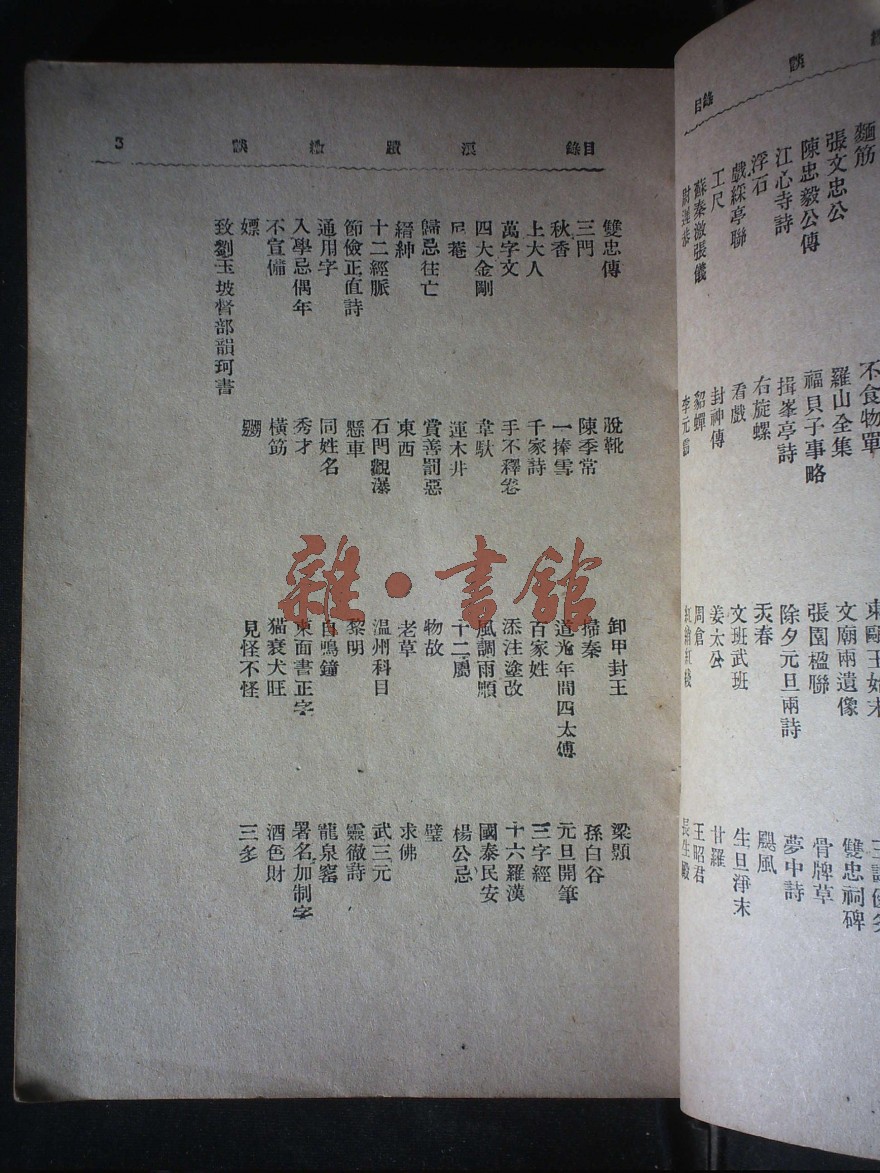 目錄 談
麵筋 不食物單 東甌王始末
張文忠公 羅山全集 文廟兩遺像 雙忠祠碑
陳忠毅公傳 福貝子事略 張園楹聯 骨牌草
江心寺詩 揖峯亭詩 除夕元旦兩詩 夢中詩
浮石 右旋螺 天春 颶風
戲綵亭聯 看戲 文班武班 生旦淨末
工尺 封神傳 姜太公 甘羅
蘇秦激張儀 貂蟬 周倉 王昭君
尉遲恭 李元霸 紅綃紅綫 長生殿
目錄 浪蹟續談 3
雙忠傳 脫靴 卸甲封王 梁顥
三門 陳季常 掃秦 孫白谷
秋香 一捧雪 道光年間四太傅 元旦開筆
上大人 千家詩 百家姓 三字經
萬字文 手不釋卷 添注塗改 十六羅漢
四大金剛 韋馱 風調雨順 國泰民安
尼菴 運木井 十二屬 楊公忌
歸忌往亡 賞善罰惡 物故 璧
縉紳 東西 老草 求佛
十二經脈 石門觀瀑 温州科目 武三元
節儉正直詩 懸車 黎明 靈徹詩
通用字 同姓名 自鳴鐘 龍泉窰
入學忌偶年 秀才 東面書正字 署名加制字
不宣備 橫筋 猫衰犬旺 酒色財
嫖 嬲 見怪不怪 三多
致劉玉坡督部韻珂書
雜·書館